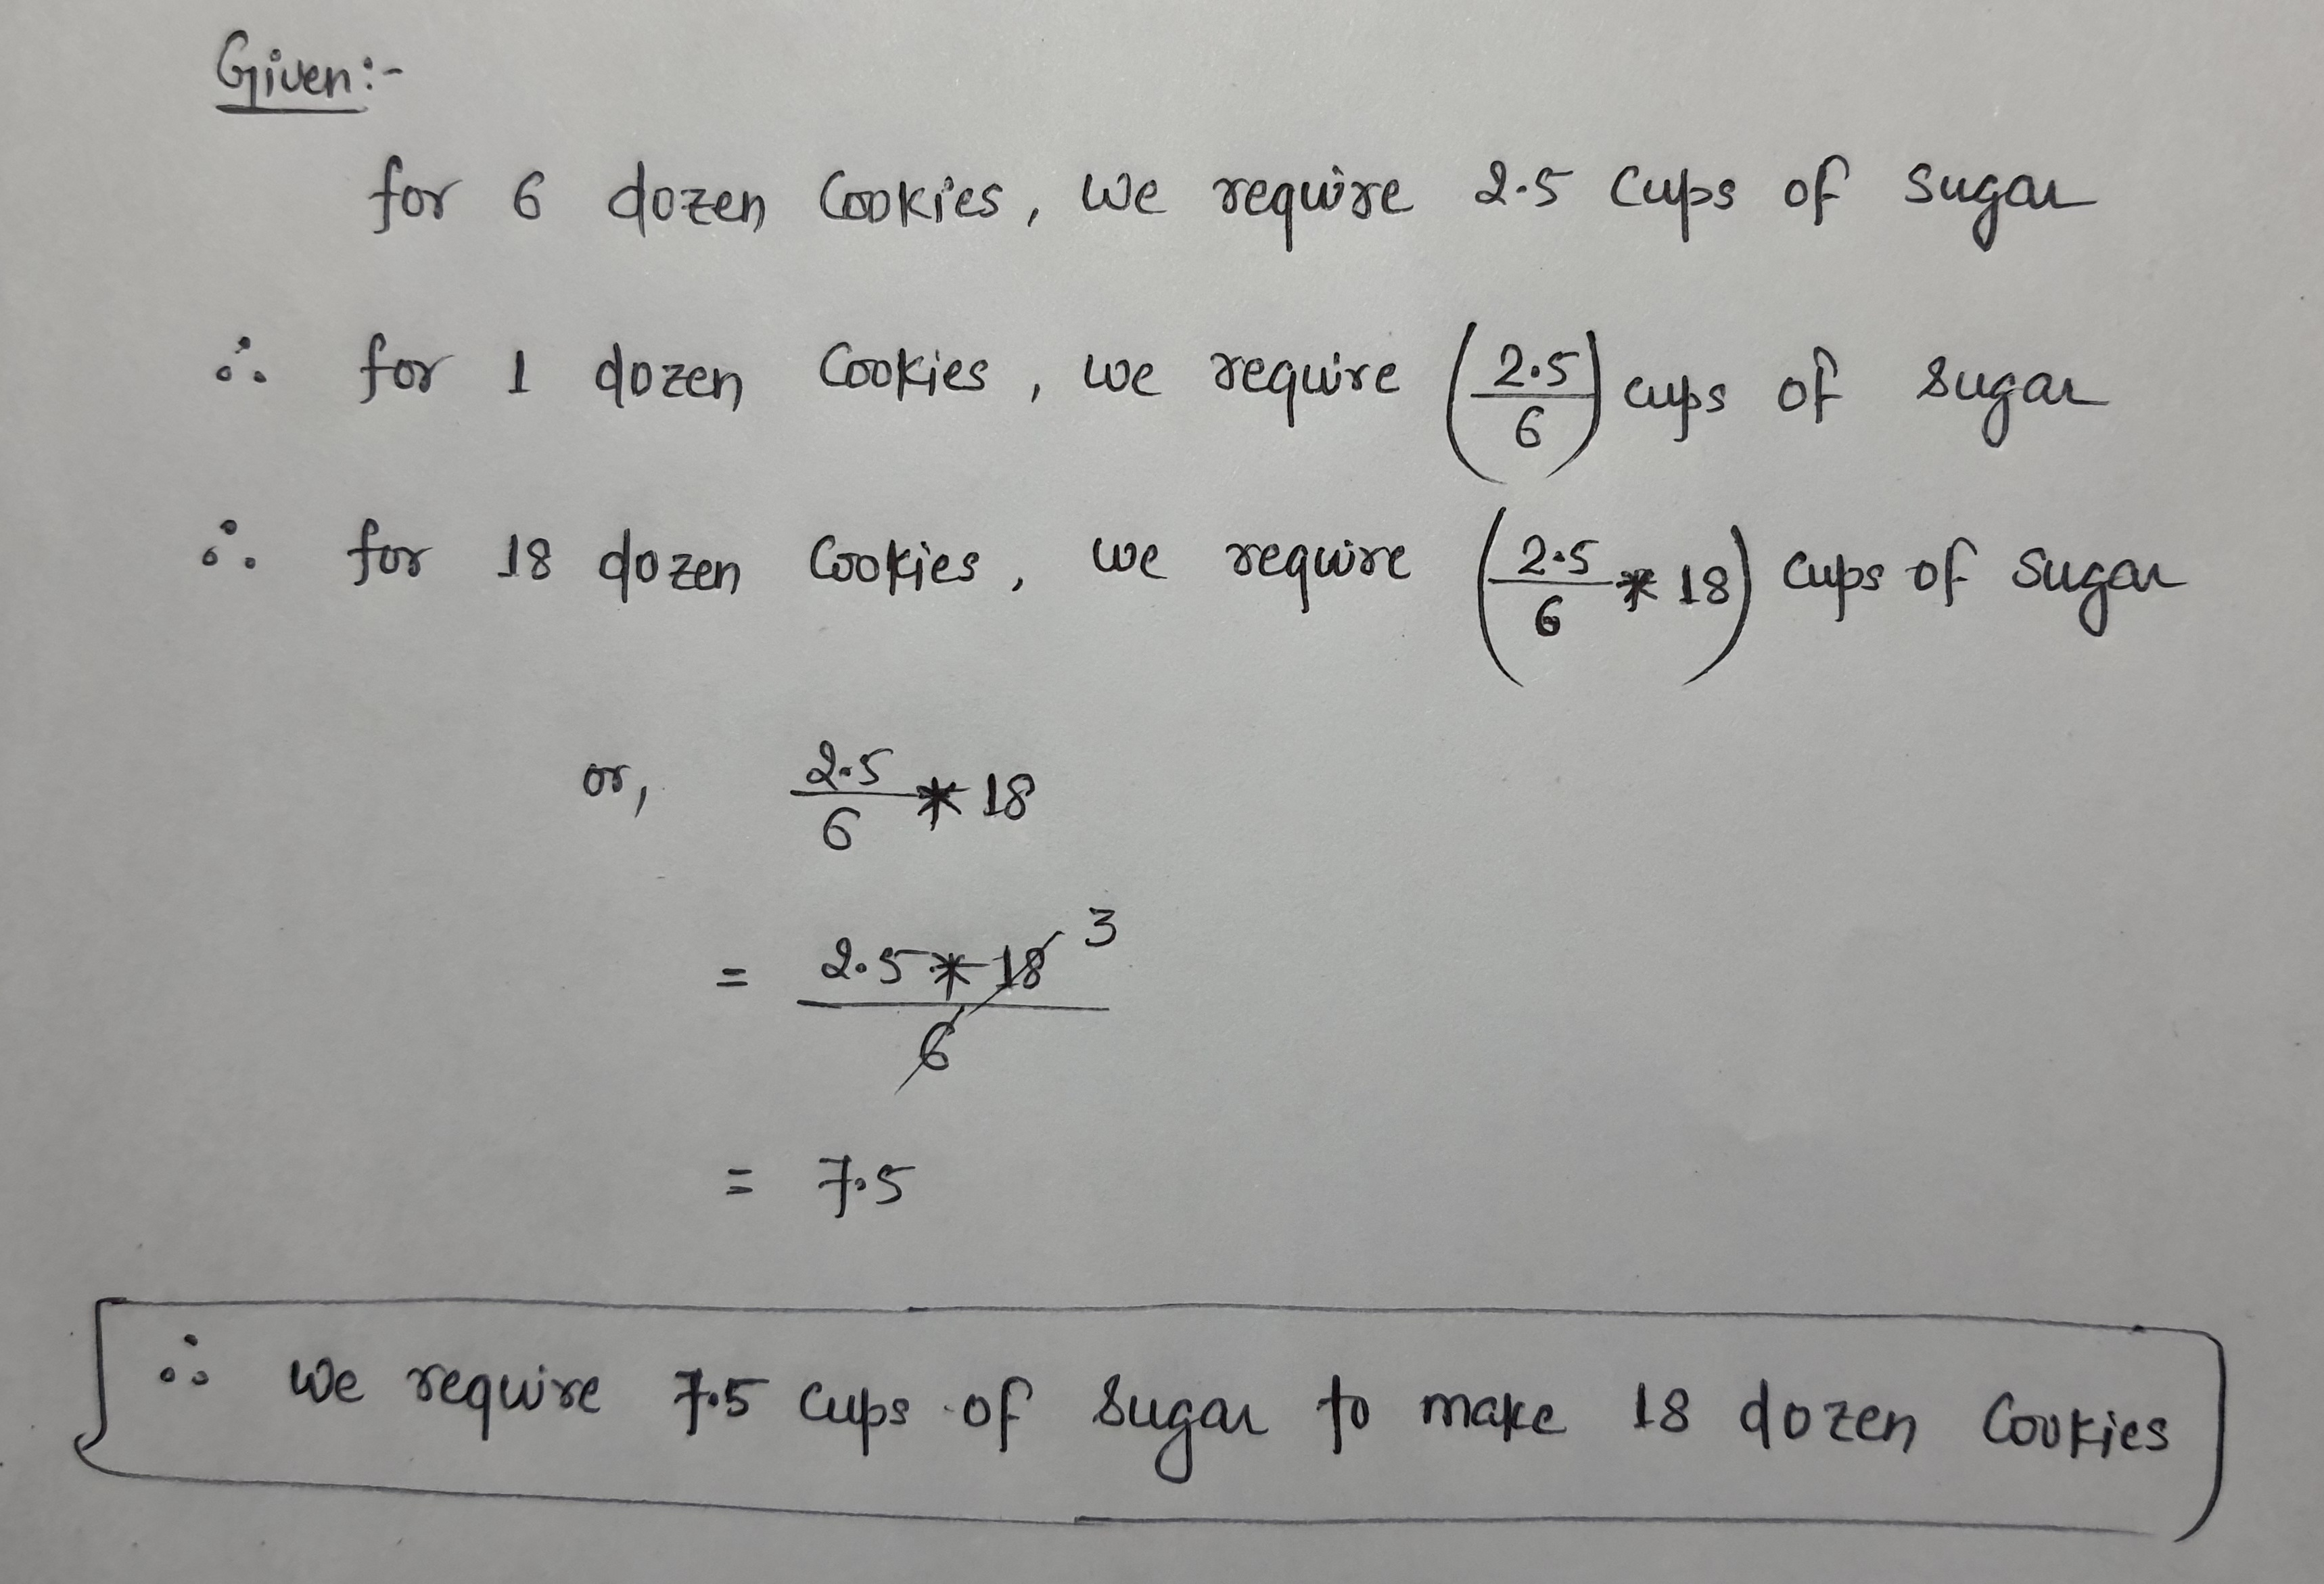 Given:-
for 6 dozen Cookies, we require 2.5 cups of sugar
∴ for 1 dozen Cookies, we require (2.5/6) cups of sugar
∴ for 18 dozen Cookies, we require (2.5/6 * 18) cups of sugar
or, 2.5/6 * 18
= 2.5 * 18 3 / 6
= 7.5
∴ we require 7.5 cups of sugar to make 18 dozen Cookies